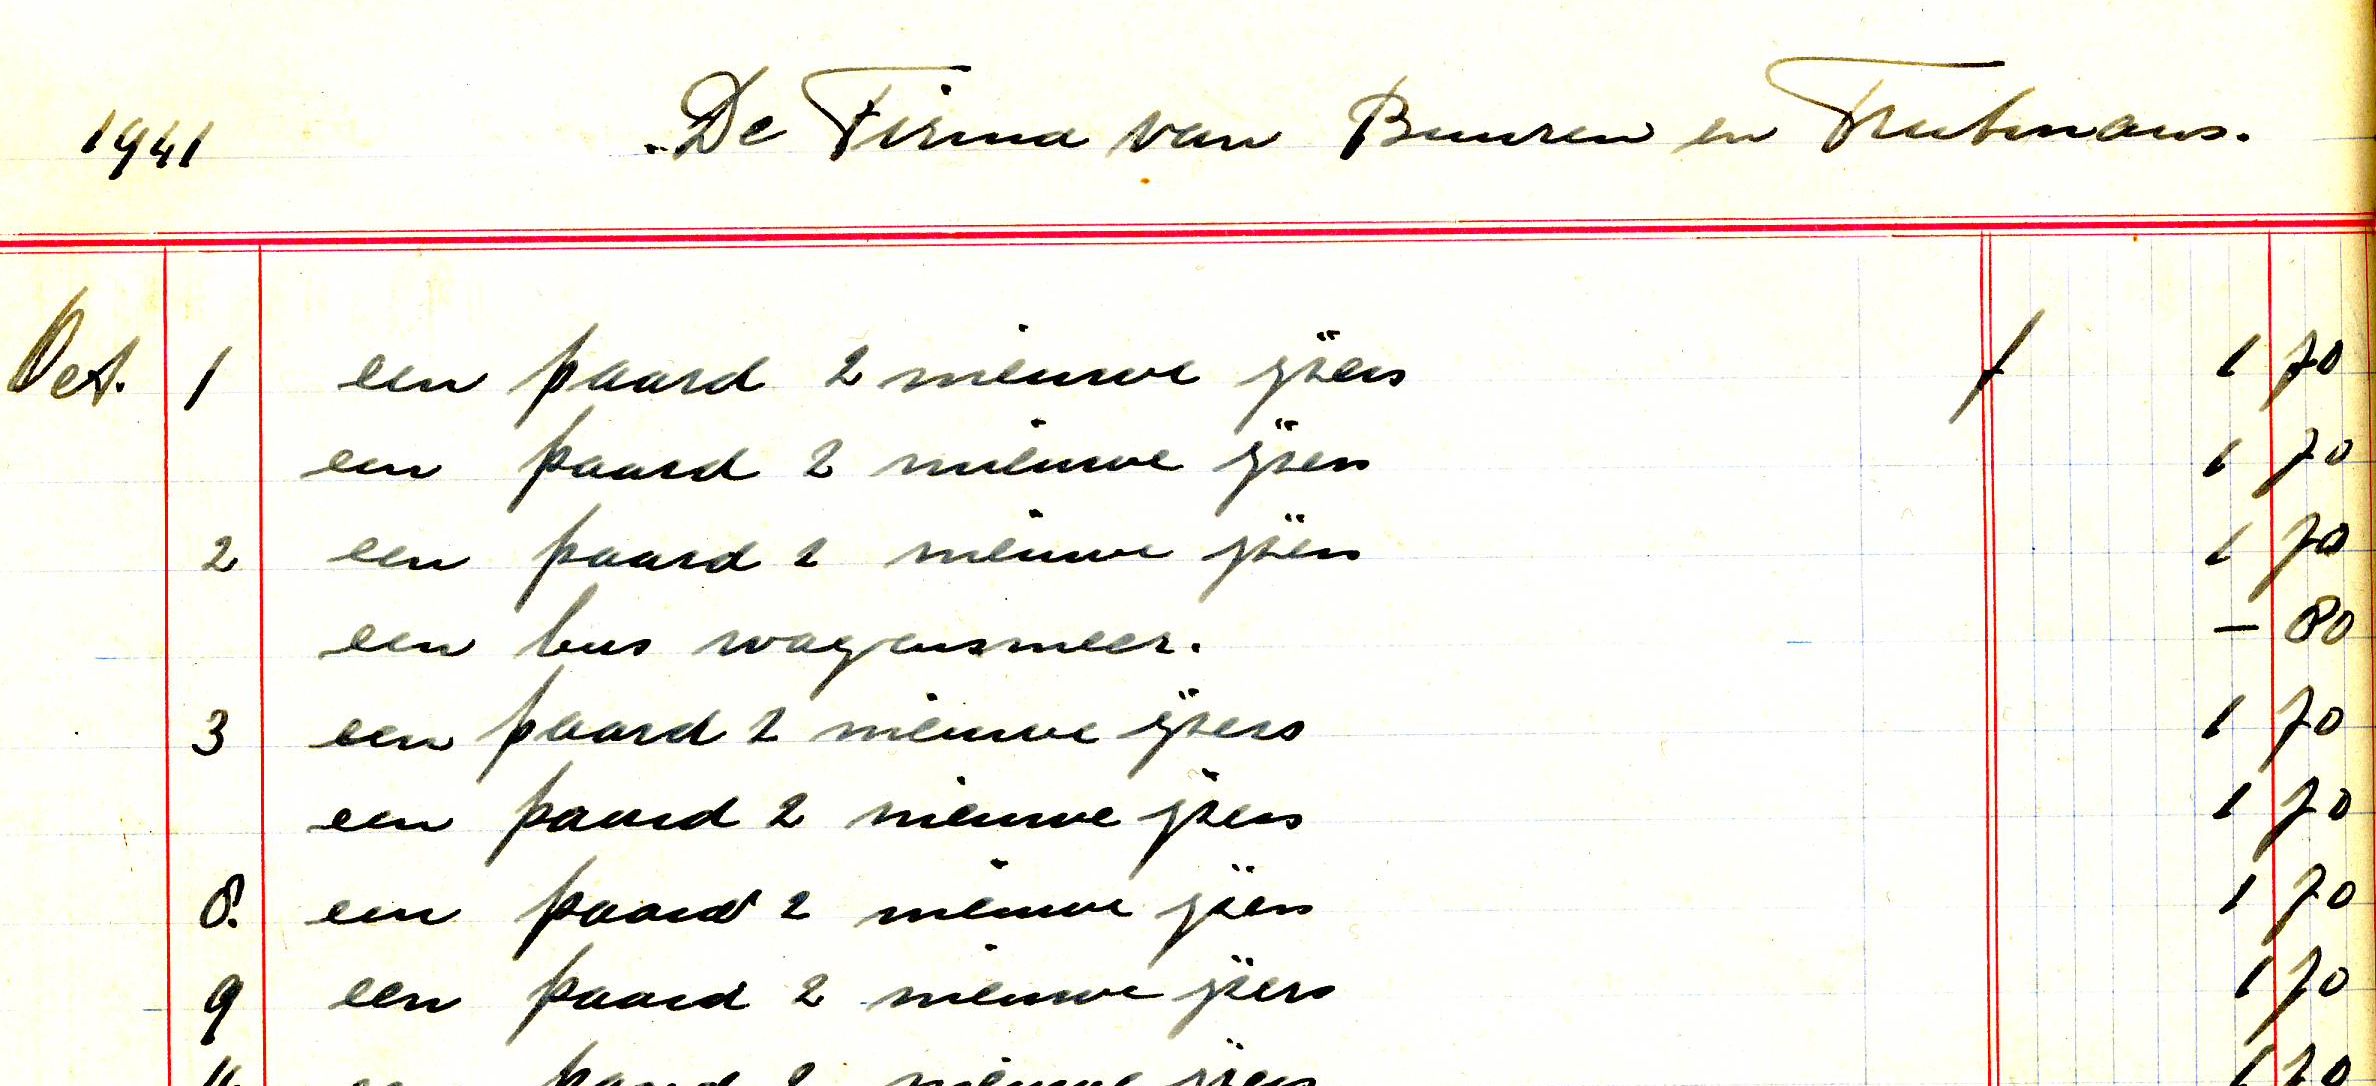 1941 De Firma van Buuren en Trutmans.
Oct. 1 een paard 2 nieuwe ijzers f 1 70
een paard 2 nieuwe ijzers 1 70
2 een paard 2 nieuwe ijzers 1 70
een bus wagensmeer. - 80
3 een paard 2 nieuwe ijzers 1 70
een paard 2 nieuwe ijzers 1 70
8. een paard 2 nieuwe ijzers 1 70
9 een paard 2 nieuwe ijzers 1 70
11 een paard 2 nieuwe ijzers 1 70